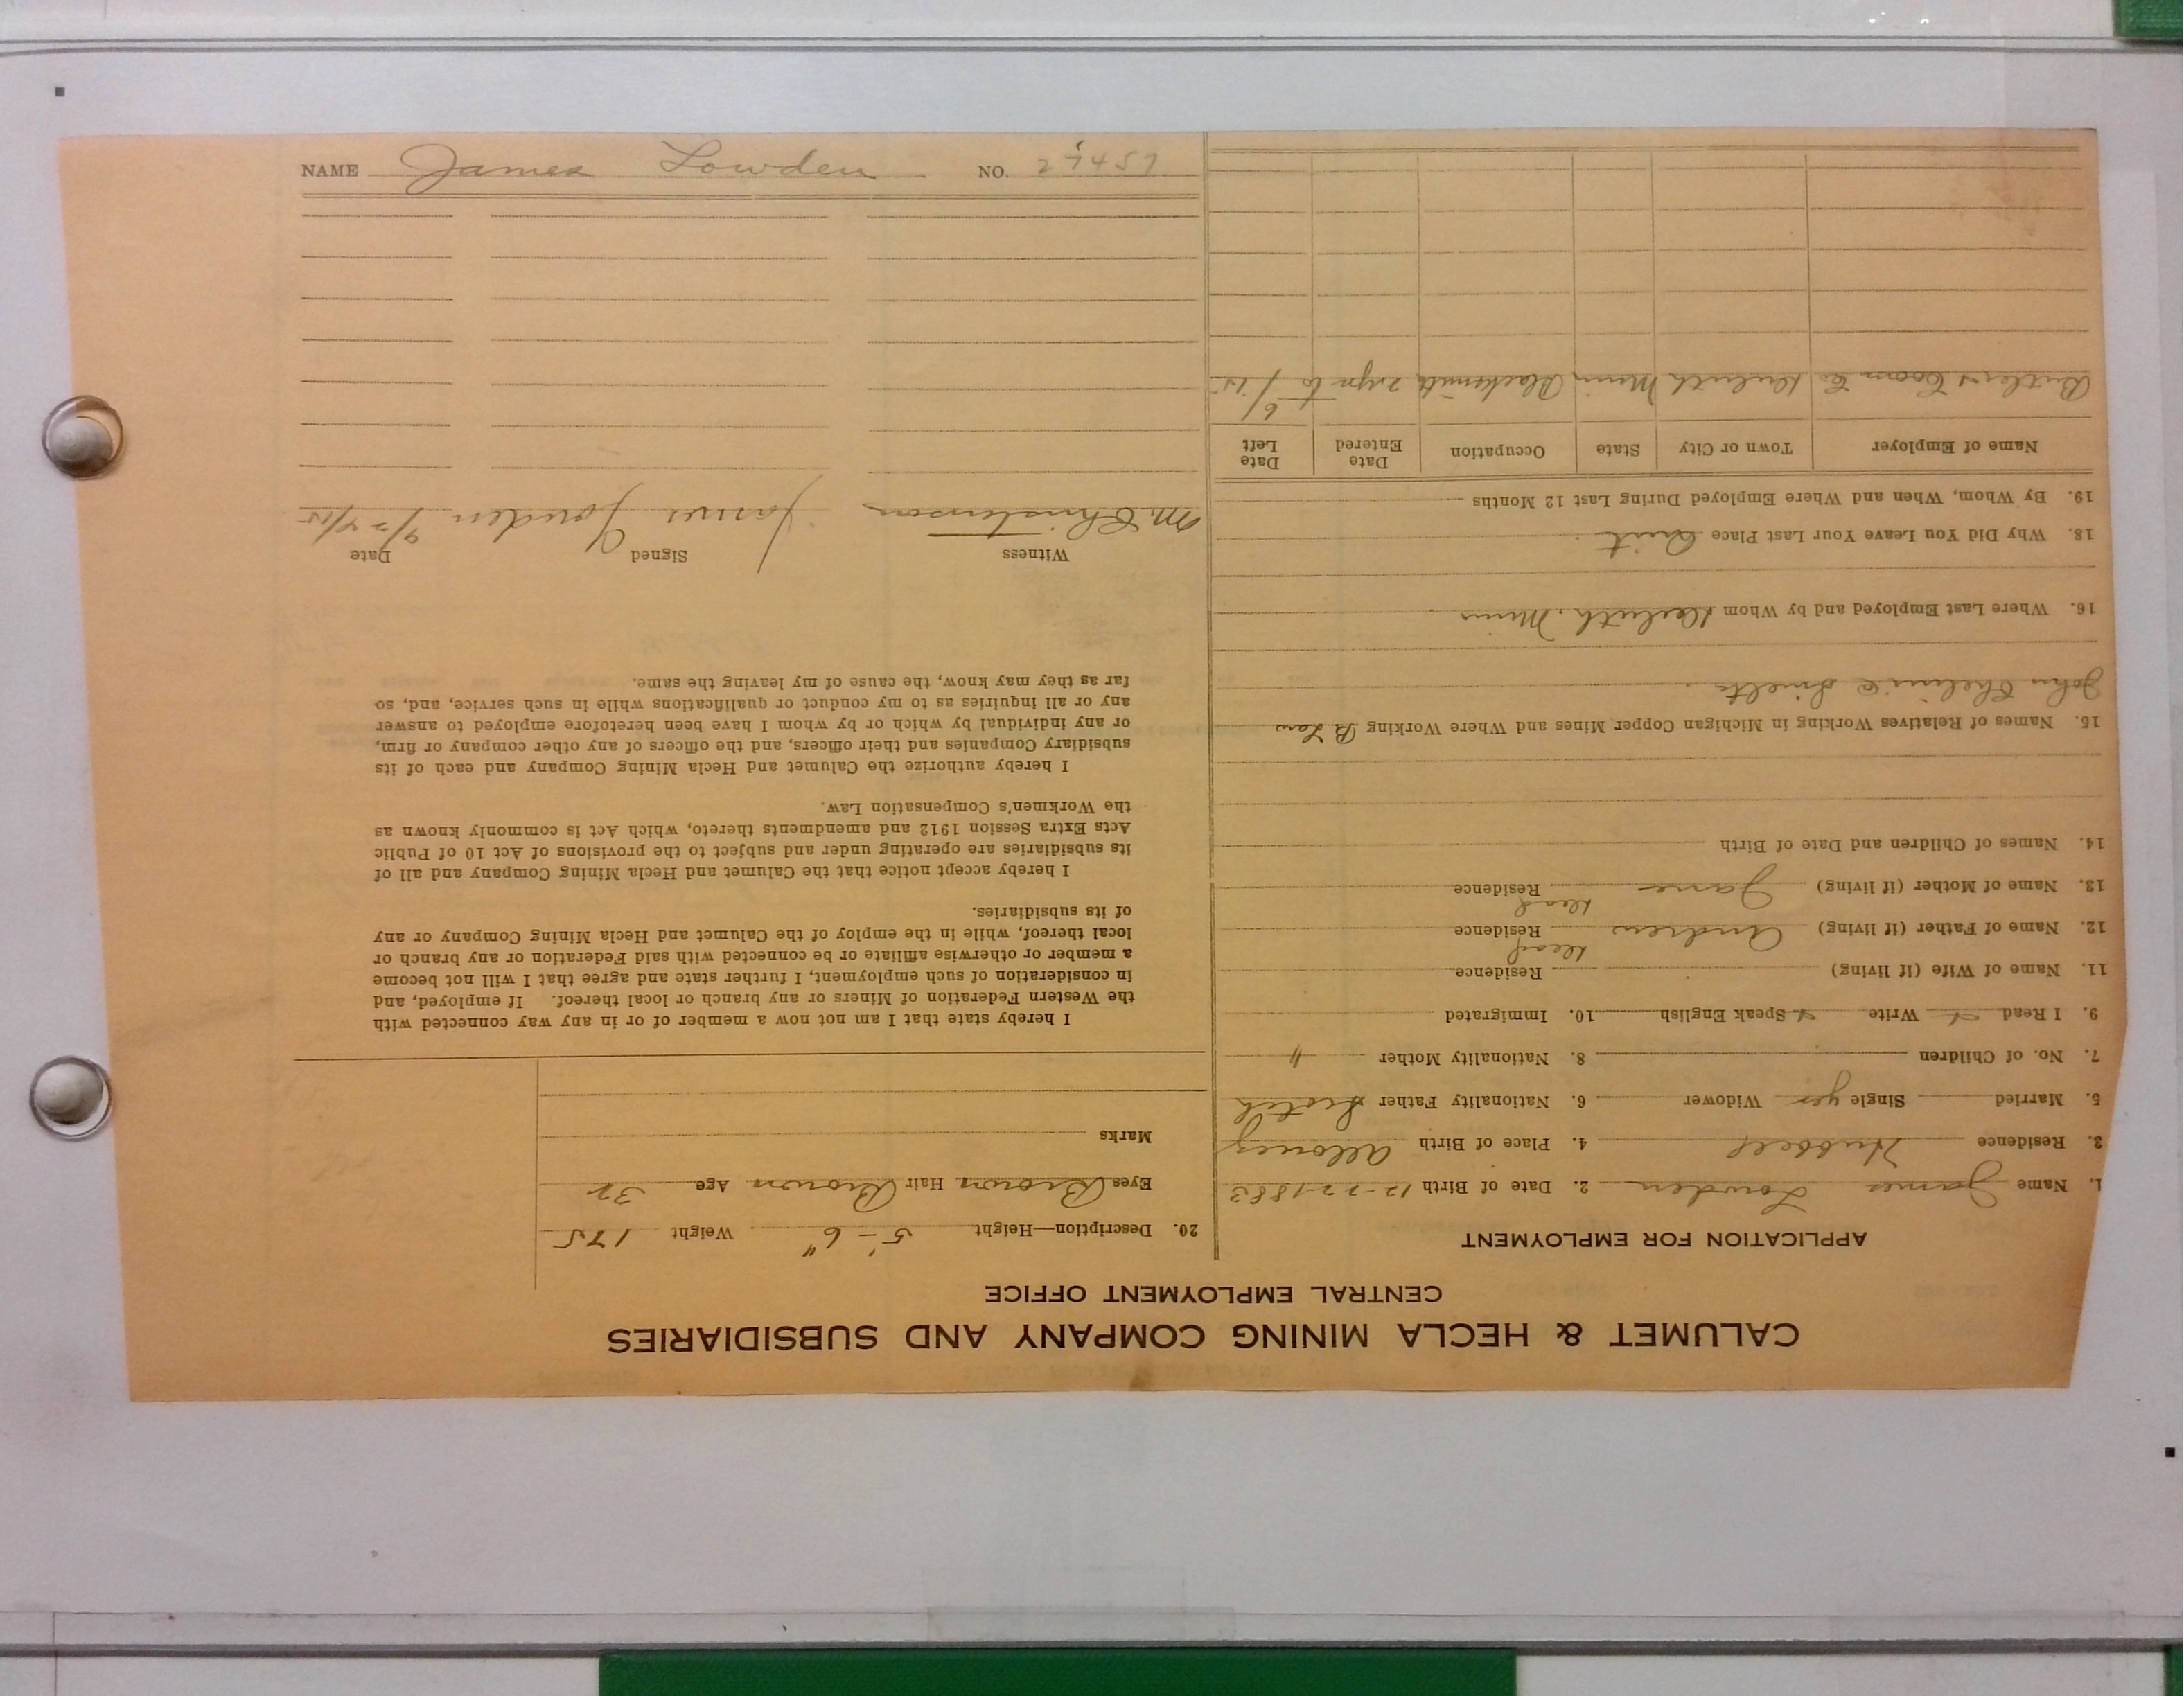 CALUMET & HECLA MINING COMPANY AND SUBSIDIARIES
CENTRAL EMPLOYMENT OFFICE
APPLICATION FOR EMPLOYMENT
1. Name James Lowden 2. Date of Birth 12-22-1883
3. Residence Hubbell 4. Place of Birth Allouez
5. Married Single yes Widower 6. Nationality Father Scotch
7. No. of Children 8. Nationality Mother "
9. I Read Write Speak English 10. Immigrated
11. Name of Wife (if living) Residence
12. Name of Father (if living) Andrew Residence Dead
13. Name of Mother (if living) Jane Residence Dead
14. Names of Children and Date of Birth
15. Names of Relatives Working in Michigan Copper Mines and Where Working B Law
John
16. Where Last Employed and by Whom Duluth, Minn
18. Why Did You Leave Your Last Place Quit
19. By Whom, When and Where Employed During Last 12 Months
Name of Employer Town or City State Occupation Date Entered Date Left
Butler Coon Co Duluth Minn Blacksmith 2 yr to 6/15
20. Description—Height 5'-6" Weight 175
Eyes Brown Hair Brown Age 32
Marks
I hereby state that I am not now a member of or in any way connected with
the Western Federation of Miners or any branch or local thereof. If employed, and
in consideration of such employment, I further state and agree that I will not become
a member or otherwise affiliate or be connected with said Federation or any branch or
local thereof, while in the employ of the Calumet and Hecla Mining Company or any
of its subsidiaries.
I hereby accept notice that the Calumet and Hecla Mining Company and all of
its subsidiaries are operating under and subject to the provisions of Act 10 of Public
Acts Extra Session 1912 and amendments thereto, which Act is commonly known as
the Workmen's Compensation Law.
I hereby authorize the Calumet and Hecla Mining Company and each of its
subsidiary Companies and their officers, and the officers of any other company or firm,
or any individual by which or by whom I have been heretofore employed to answer
any or all inquiries as to my conduct or qualifications while in such service, and, so
far as they may know, the cause of my leaving the same.
Witness Signed Date
M. Christenson James Lowden 9/24/15
NAME James Lowden NO. 27457